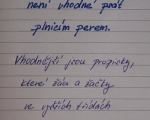 není vhodné psát
plnicím perem.
Vhodnější jsou propisky,
které žáci a žačky
ve vyšších třídách